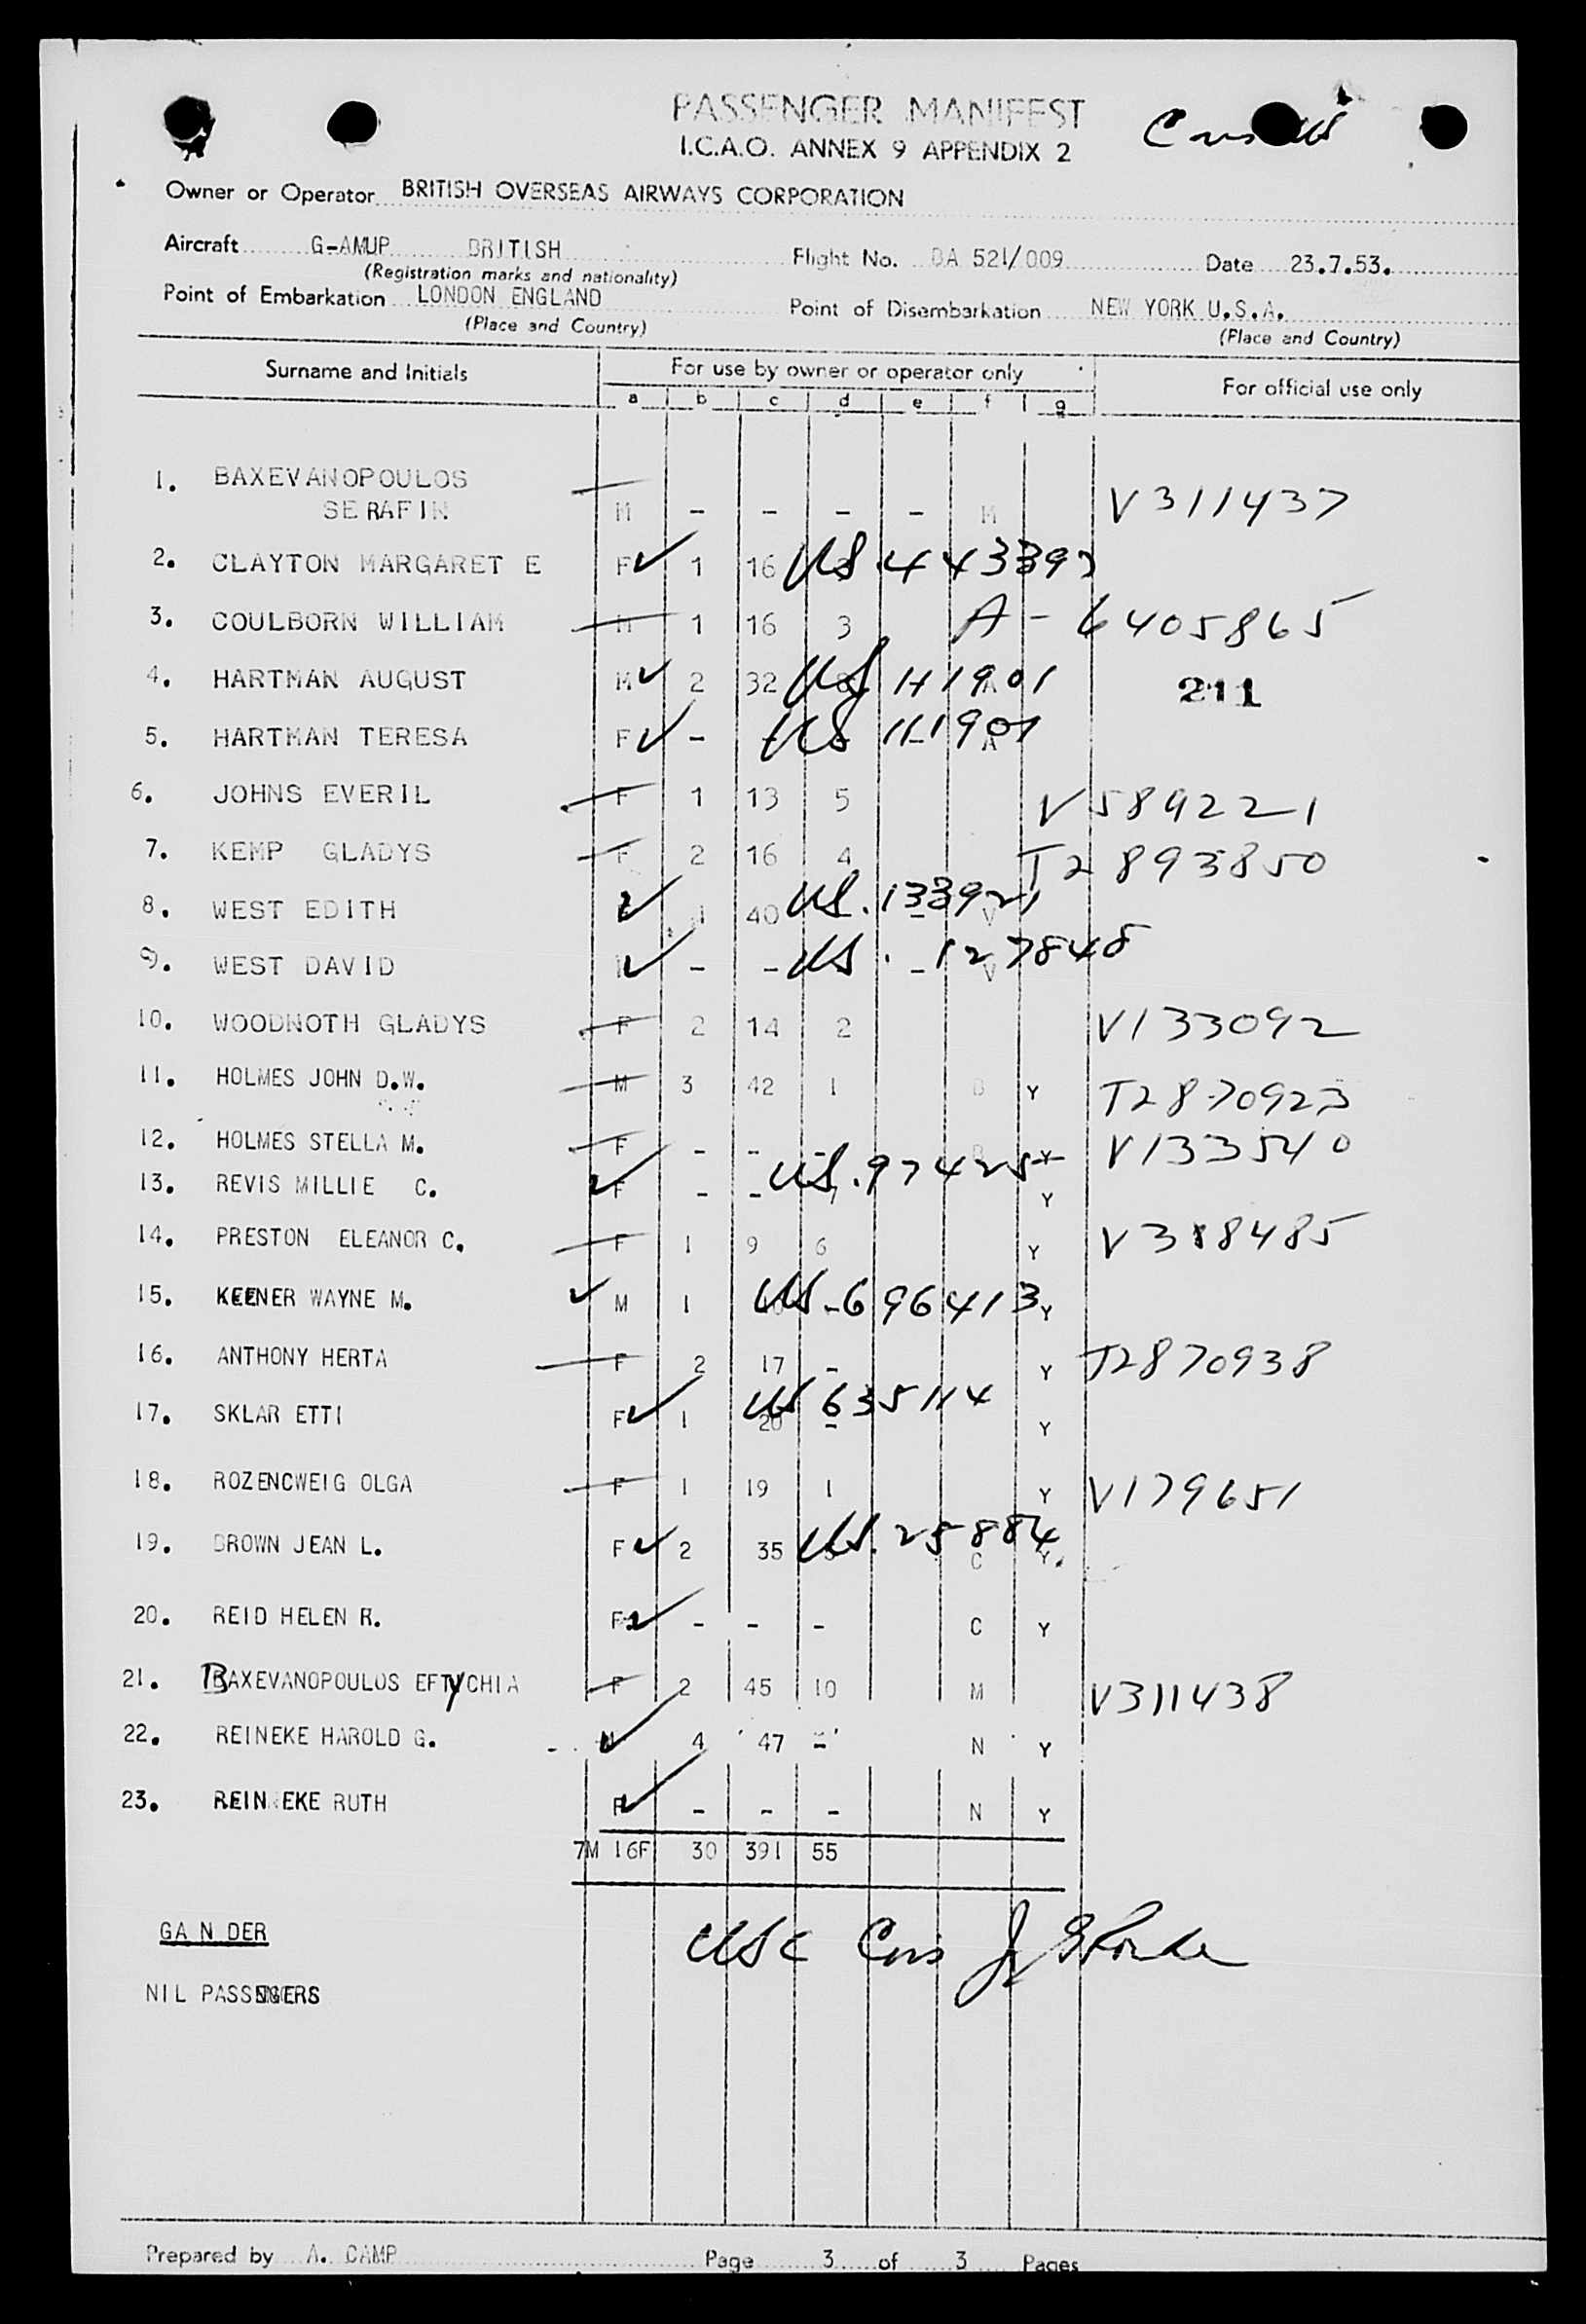 PASSENGER MANIFEST
I.C.A.O. ANNEX 9 APPENDIX 2
Owner or Operator BRITISH OVERSEAS AIRWAYS CORPORATION
Aircraft G-AMUP BRITISH Flight No. BA 521/009 Date 23.7.53.
(Registration marks and nationality)
Point of Embarkation LONDON ENGLAND Point of Disembarkation NEW YORK U.S.A.
(Place and Country) (Place and Country)
Surname and Initials For use by owner or operator only For official use only
a b c d e f g
1. BAXEVANOPOULOS
SERAFIN M - - - - M V311437
2. CLAYTON MARGARET E F ✓ 1 16 US 443392
3. COULBORN WILLIAM M 1 16 3 A-6405865
4. HARTMAN AUGUST M ✓ 2 32 US 111901 A 211
5. HARTMAN TERESA F ✓ - - US 111901 A
6. JOHNS EVERIL F 1 13 5 V589221
7. KEMP GLADYS F 2 16 4 T2893850
8. WEST EDITH ✓ 1 40 US. 133921 - V
9. WEST DAVID M ✓ - - US. 127848 - V
10. WOODNOTH GLADYS F 2 14 2 V133092
11. HOLMES JOHN D.W. M 3 42 1 B Y T2870923
12. HOLMES STELLA M. F - - - B Y V133540
13. REVIS MILLIE C. ✓ F - - 7 US.97425 Y
14. PRESTON ELEANOR C. F 1 9 6 Y V318485
15. KEENER WAYNE M. ✓ M 1 US-696413 Y
16. ANTHONY HERTA F 2 17 - Y T2870938
17. SKLAR ETTI F ✓ 1 20 - US 635114 Y
18. ROZENCWEIG OLGA F 1 19 1 Y V179651
19. BROWN JEAN L. F ✓ 2 35 US. 25884 C Y.
20. REID HELEN R. F ✓ - - - C Y
21. BAXEVANOPOULOS EFTYCHIA F 2 45 10 M V311438
22. REINEKE HAROLD G. M ✓ 4 47 - N Y
23. REINEKE RUTH F ✓ - - - N Y
7M 16F 30 391 55
GANDER USC
NIL PASSENGERS
Prepared by A. CAMP Page 3 of 3 Pages